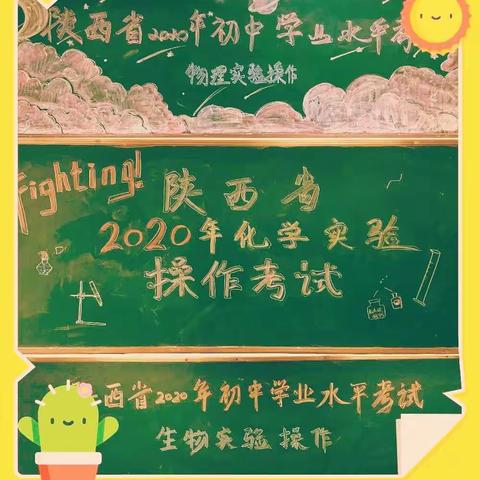 陕西省2020年初中学业水平考
物理实验操作
Fighting!
陕西省
2020年化学实验
操作考试
西省2020年初中学业水平考试
生物实验操作